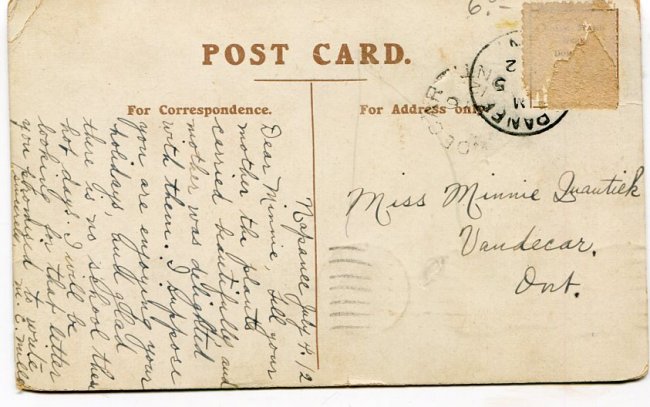 POST CARD.
For Correspondence.
For Address only.
Napanee July 4. 12
Dear Minnie, Tell your
mother the plants
carried beautifully and
mother was delighted
with them. I suppose
you are enjoying your
holidays, and glad
there is no school these
hot days. I will be
looking for that letter
you promised to write
sincerely M. E. Mills
Miss Minnie
Vandecar,
Ont.